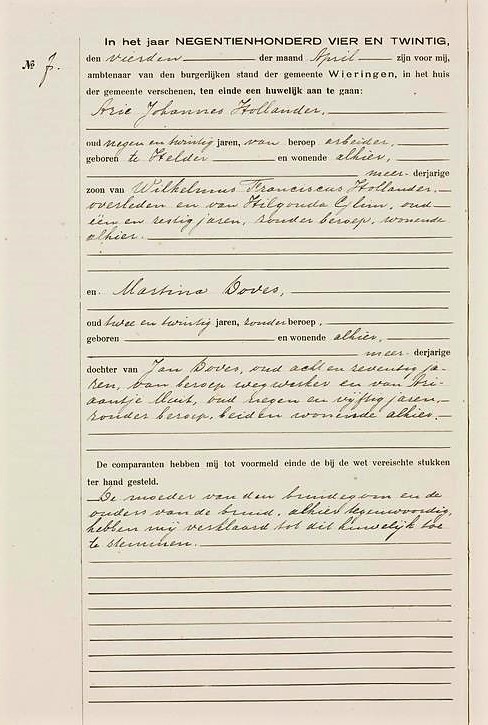 In het jaar NEGENTIENHONDERD VIER EN TWINTIG,
№ 7. den vierden der maand April zijn voor mij,
ambtenaar van den burgerlijken stand der gemeente Wieringen, in het huis
der gemeente verschenen, ten einde een huwelijk aan te gaan:
Arie Johannes Hollander,
oud negen en twintig jaren, van beroep arbeider,
geboren te Helder en wonende alhier,
meer-derjarige
zoon van Wilhelmus Franciscus Hollander,
overleden en van Hilgonda Glim, oud
één en zestig jaren, zonder beroep, wonende
alhier.
en Martina Boves,
oud twee en twintig jaren, zonder beroep,
geboren en wonende alhier,
meer-derjarige
dochter van Jan Boves, oud acht en zeventig ja-
ren, van beroep wegwerker en van Ari-
aantje, oud negen en vijftig jaren,
zonder beroep, beiden wonende alhier.
De comparanten hebben mij tot voormeld einde de bij de wet vereischte stukken
ter hand gesteld.
De moeder van den bruidegom en de
ouders van de bruid, alhier tegenwoordig,
hebben mij verklaard tot dit huwelijk toe
te stemmen.